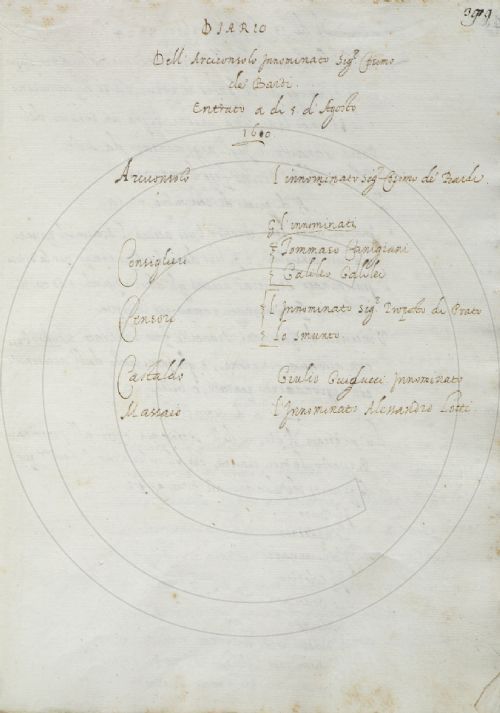 DIARIO
Dell' Arciconsolo Innominato Sig.r Cosimo
de' Bardi.
Entrato a di 5 d' Agosto
Arciconsolo l'innominato Sig.r Cosimo de' Bardi.
Gl'innominati
Consiglieri Tommaso Canigiani
Galileo Galilei
Censori l'Innominato Sig.r di Prato
Lo smunto
Castaldo Giulio Guiducci Innominato
Massaio l'Innominato Alessandro